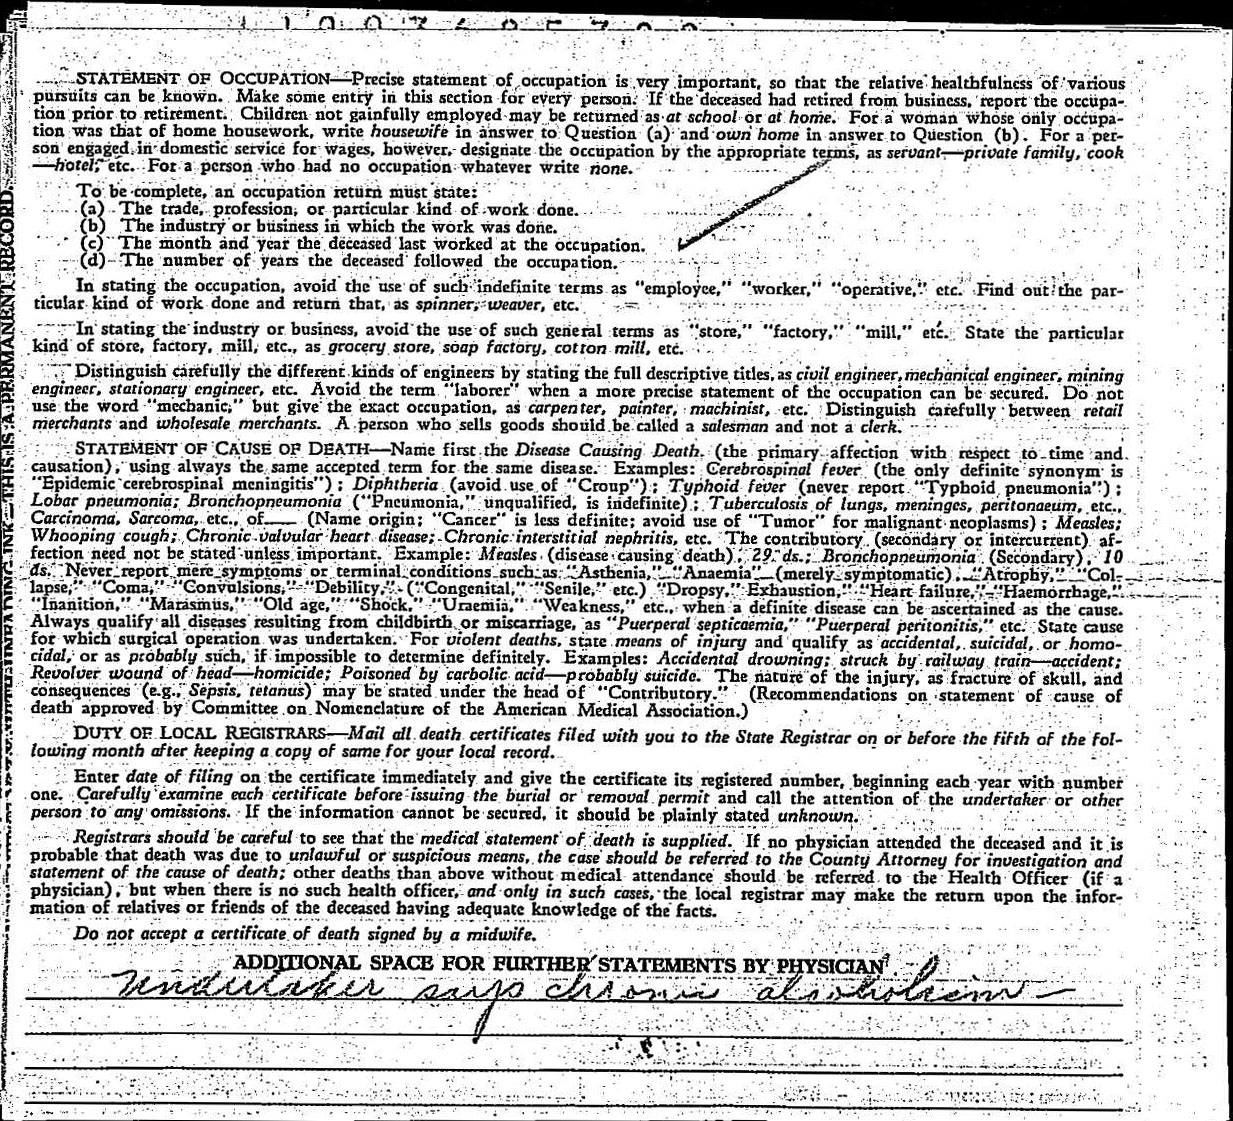 STATEMENT OF OCCUPATION—Precise statement of occupation is very important, so that the relative healthfulness of various
pursuits can be known. Make some entry in this section for every person. If the deceased had retired from business, report the occupa-
tion prior to retirement. Children not gainfully employed may be returned as at school or at home. For a woman whose only occupa-
tion was that of home housework, write housewife in answer to Question (a) and own home in answer to Question (b). For a per-
son engaged in domestic service for wages, however, designate the occupation by the appropriate terms, as servant—private family, cook
—hotel, etc. For a person who had no occupation whatever write none.
To be complete, an occupation return must state:
(a) The trade, profession, or particular kind of work done.
(b) The industry or business in which the work was done.
(c) The month and year the deceased last worked at the occupation.
(d) The number of years the deceased followed the occupation.
In stating the occupation, avoid the use of such indefinite terms as "employee," "worker," "operative," etc. Find out the par-
ticular kind of work done and return that, as spinner, weaver, etc.
In stating the industry or business, avoid the use of such general terms as "store," "factory," "mill," etc. State the particular
kind of store, factory, mill, etc., as grocery store, soap factory, cotton mill, etc.
Distinguish carefully the different kinds of engineers by stating the full descriptive titles, as civil engineer, mechanical engineer, mining
engineer, stationary engineer, etc. Avoid the term "laborer" when a more precise statement of the occupation can be secured. Do not
use the word "mechanic," but give the exact occupation, as carpenter, painter, machinist, etc. Distinguish carefully between retail
merchants and wholesale merchants. A person who sells goods should be called a salesman and not a clerk.
STATEMENT OF CAUSE OF DEATH—Name first the Disease Causing Death. (the primary affection with respect to time and
causation), using always the same accepted term for the same disease. Examples: Cerebrospinal fever (the only definite synonym is
"Epidemic cerebrospinal meningitis"); Diphtheria (avoid use of "Croup"); Typhoid fever (never report "Typhoid pneumonia");
Lobar pneumonia; Bronchopneumonia ("Pneumonia," unqualified, is indefinite); Tuberculosis of lungs, meninges, peritonaeum, etc.,
Carcinoma, Sarcoma, etc., of____ (Name origin; "Cancer" is less definite; avoid use of "Tumor" for malignant neoplasms); Measles;
Whooping cough; Chronic valvular heart disease; Chronic interstitial nephritis, etc. The contributory (secondary or intercurrent) af-
fection need not be stated unless important. Example: Measles (disease causing death), 29 ds.; Bronchopneumonia (Secondary), 10
ds. Never report mere symptoms or terminal conditions such as "Asthenia," "Anaemia" (merely symptomatic), "Atrophy," "Col-
lapse," "Coma," "Convulsions," "Debility," ("Congenital," "Senile," etc.) "Dropsy," Exhaustion," "Heart failure," "Haemorrhage,"
"Inanition," "Marasmus," "Old age," "Shock," "Uraemia," "Weakness," etc., when a definite disease can be ascertained as the cause.
Always qualify all diseases resulting from childbirth or miscarriage, as "Puerperal septicaemia," "Puerperal peritonitis," etc. State cause
for which surgical operation was undertaken. For violent deaths, state means of injury and qualify as accidental, suicidal, or homo-
cidal, or as probably such, if impossible to determine definitely. Examples: Accidental drowning; struck by railway train—accident;
Revolver wound of head—homicide; Poisoned by carbolic acid—probably suicide. The nature of the injury, as fracture of skull, and
consequences (e.g., Sepsis, tetanus) may be stated under the head of "Contributory." (Recommendations on statement of cause of
death approved by Committee on Nomenclature of the American Medical Association.)
DUTY OF LOCAL REGISTRARS—Mail all death certificates filed with you to the State Registrar on or before the fifth of the fol-
lowing month after keeping a copy of same for your local record.
Enter date of filing on the certificate immediately and give the certificate its registered number, beginning each year with number
one. Carefully examine each certificate before issuing the burial or removal permit and call the attention of the undertaker or other
person to any omissions. If the information cannot be secured, it should be plainly stated unknown.
Registrars should be careful to see that the medical statement of death is supplied. If no physician attended the deceased and it is
probable that death was due to unlawful or suspicious means, the case should be referred to the County Attorney for investigation and
statement of the cause of death; other deaths than above without medical attendance should be referred to the Health Officer (if a
physician), but when there is no such health officer, and only in such cases, the local registrar may make the return upon the infor-
mation of relatives or friends of the deceased having adequate knowledge of the facts.
Do not accept a certificate of death signed by a midwife.
ADDITIONAL SPACE FOR FURTHER STATEMENTS BY PHYSICIAN
Undertaker says chronic alcoholism
THIS IS A PERMANENT RECORD